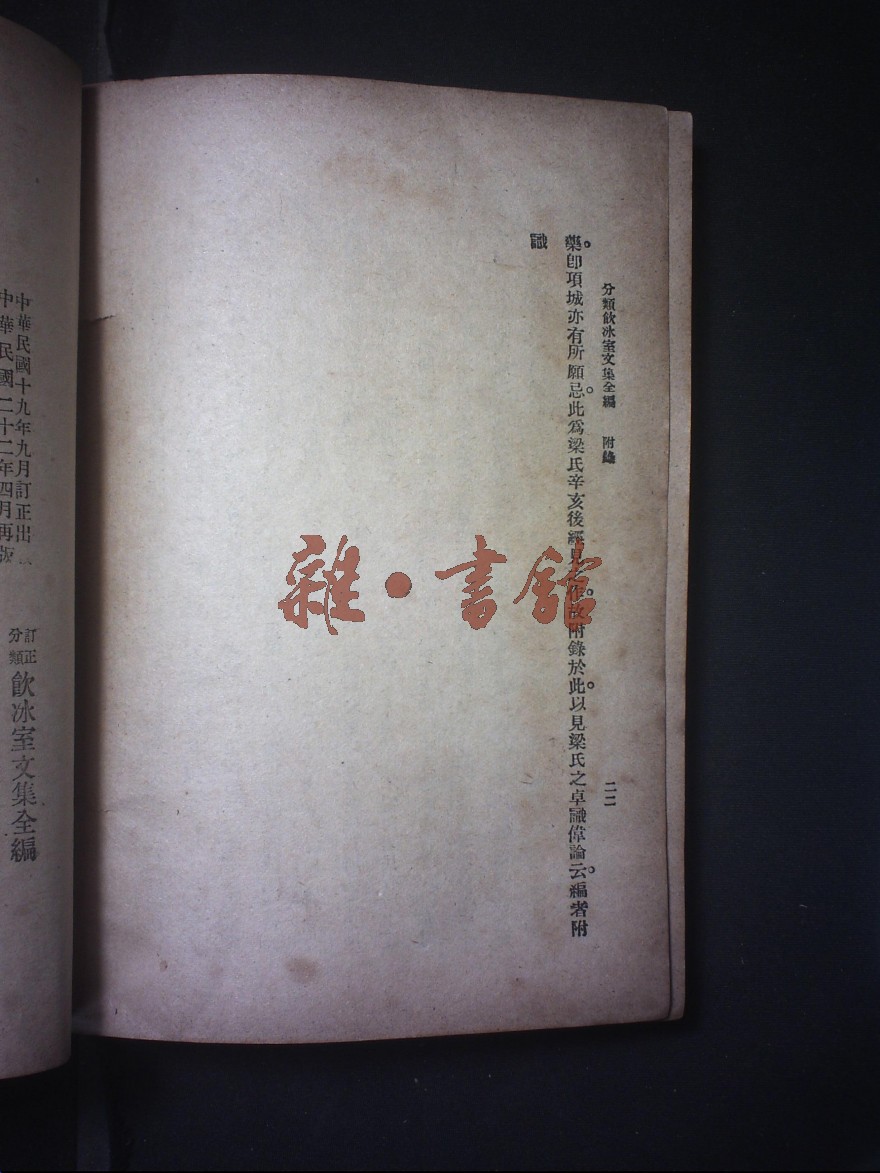 分類飲冰室文集全編 附錄 二二
藥。卽項城亦有所願忌。此爲梁氏辛亥後經見之作。故附錄於此。以見梁氏之卓識偉論云。編者附
識
雜·書館
中華民國十九年九月訂正出
中華民國二十二年四月再版
訂正
分類
飲冰室文集全編